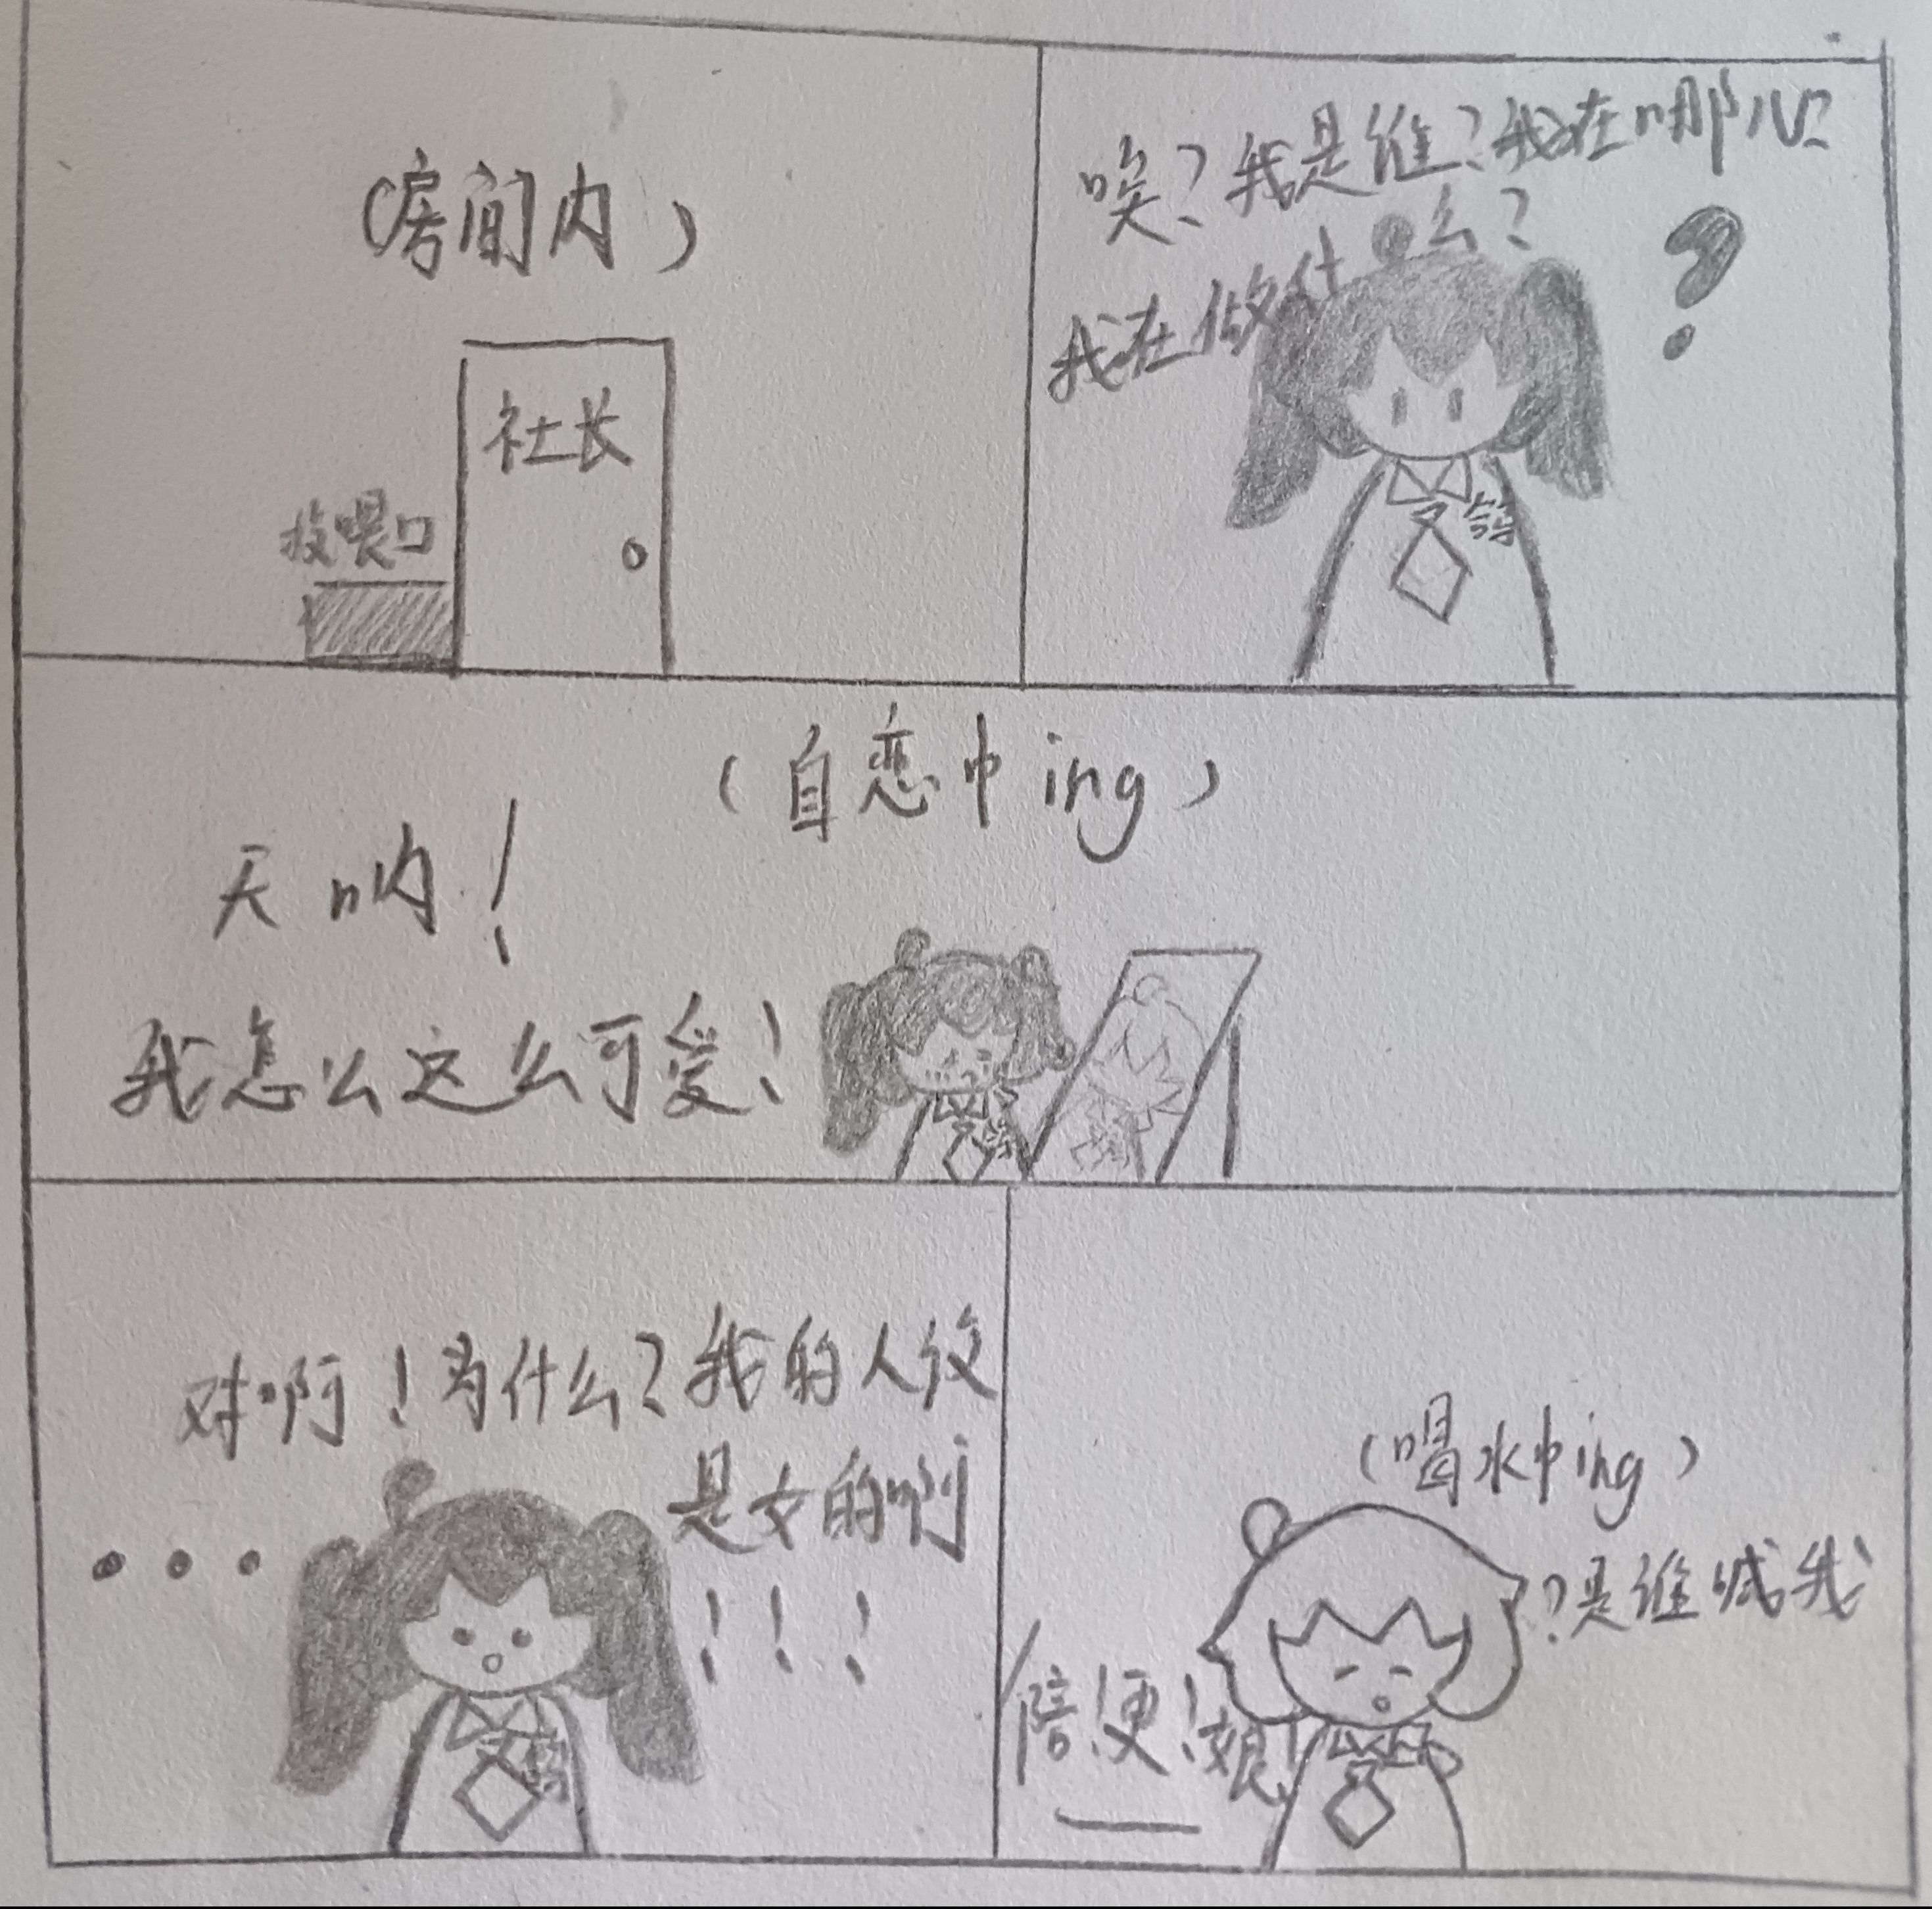 (房间内)
社长
投喂口
唉?我是谁?我在哪儿?
我在做什么?
(自恋中ing)
天呐!
我怎么这么可爱!
对啊!为什么?我的人设
是女的啊
!!!
(喝水中ing)
?是谁喊我
陪!便!娘!